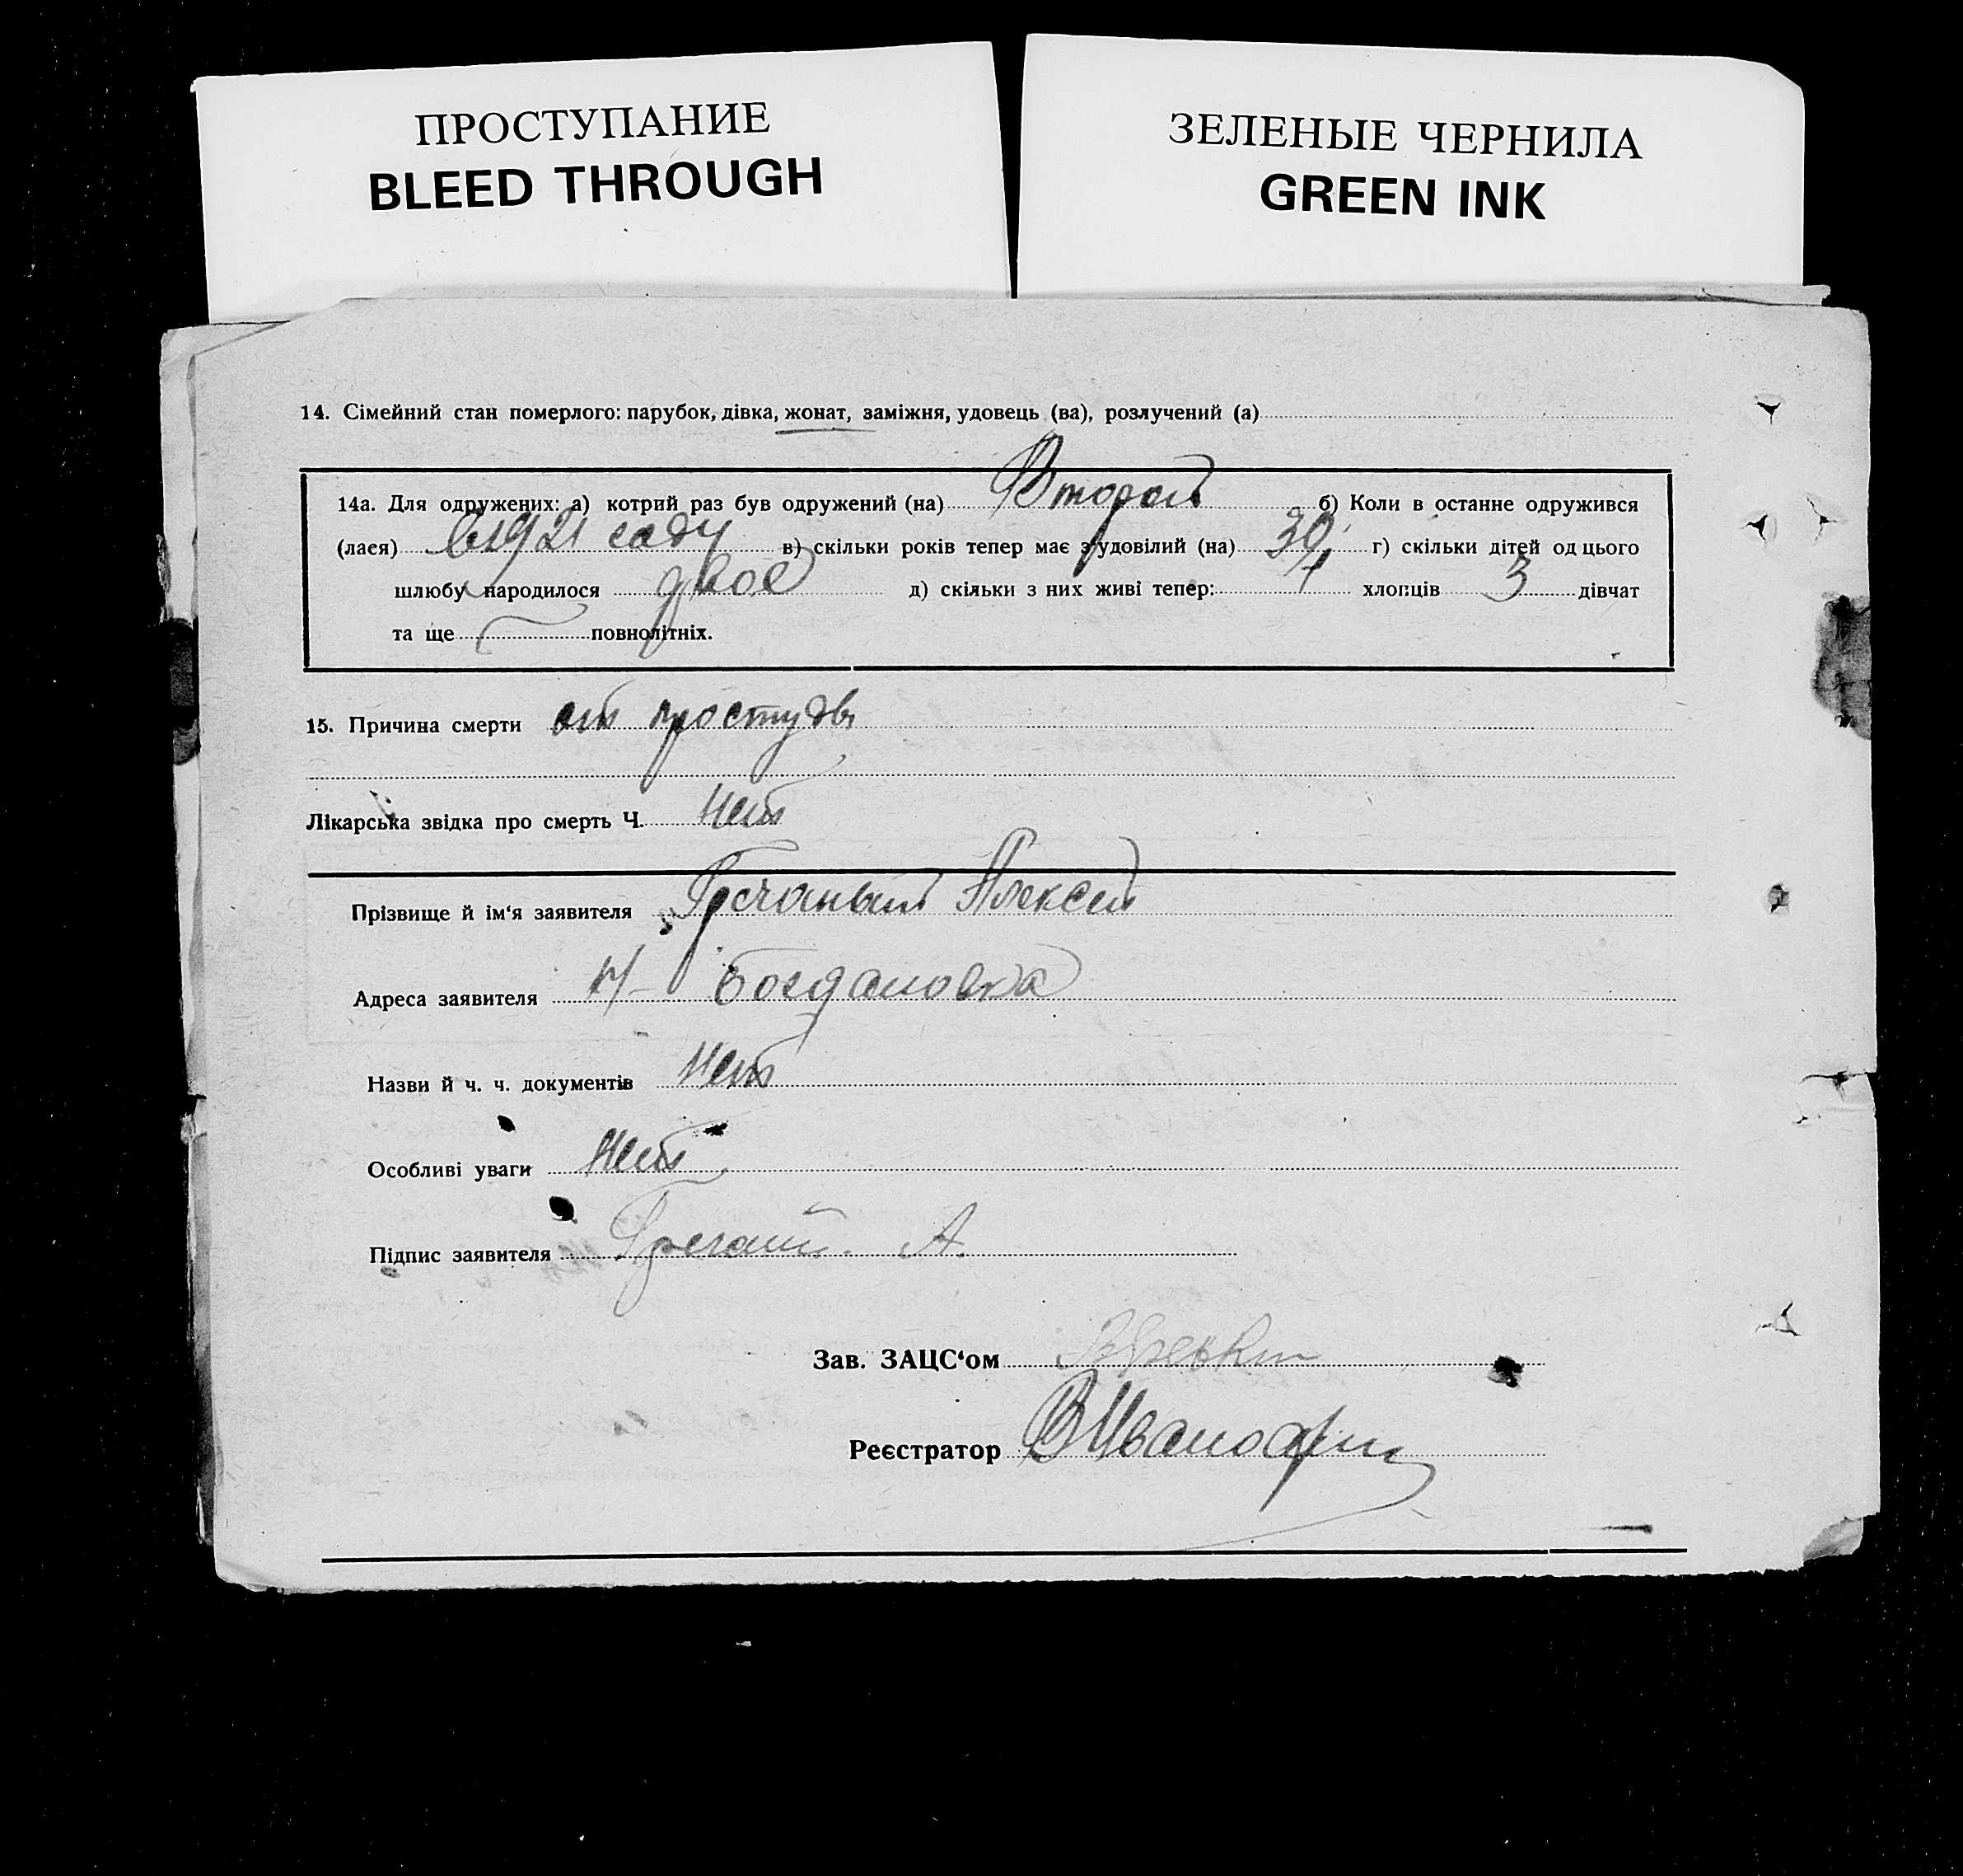 ПРОСТУПАНИЕ
BLEED THROUGH
ЗЕЛЕНЫЕ ЧЕРНИЛА
GREEN INK
14. Сімейний стан померлого: парубок, дівка, жонат, заміжня, удовець (ва), розлучений (а)
14а. Для одружених: а) котрий раз був одружений (на) Второй б) Коли в останне одружився
(лася) в 1921 году в) скільки років тепер має з/удовілий (на) 39 г) скільки дітей од цього
шлюбу народилося двое д) скільки з них живі тепер: 1 хлопців 3 дівчат
та ще повнолітніх.
15. Причина смерти от простуды
Лікарська звідка про смерть Ч. Нет
Прізвище й ім‘я заявителя Гречаный Алексей
Адреса заявителя Н- Богдановка
Назви й ч. ч. документів Нет
Особливі уваги Нет
Підпис заявителя А.
Зав. ЗАЦС‘ом
Реєстратор